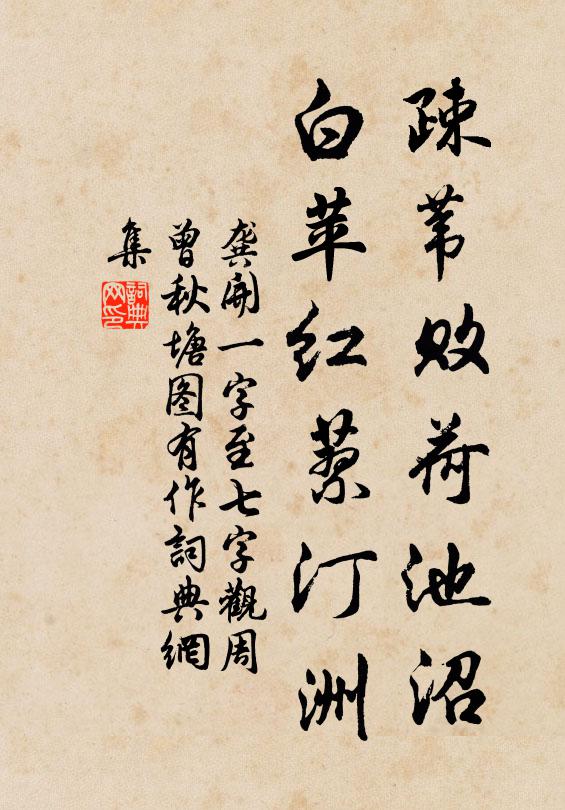 疎苇败荷池沼
白苹红蓼汀洲
龚开一字至七字觀周
曾秋塘图有作詞典網
集
詞典网印